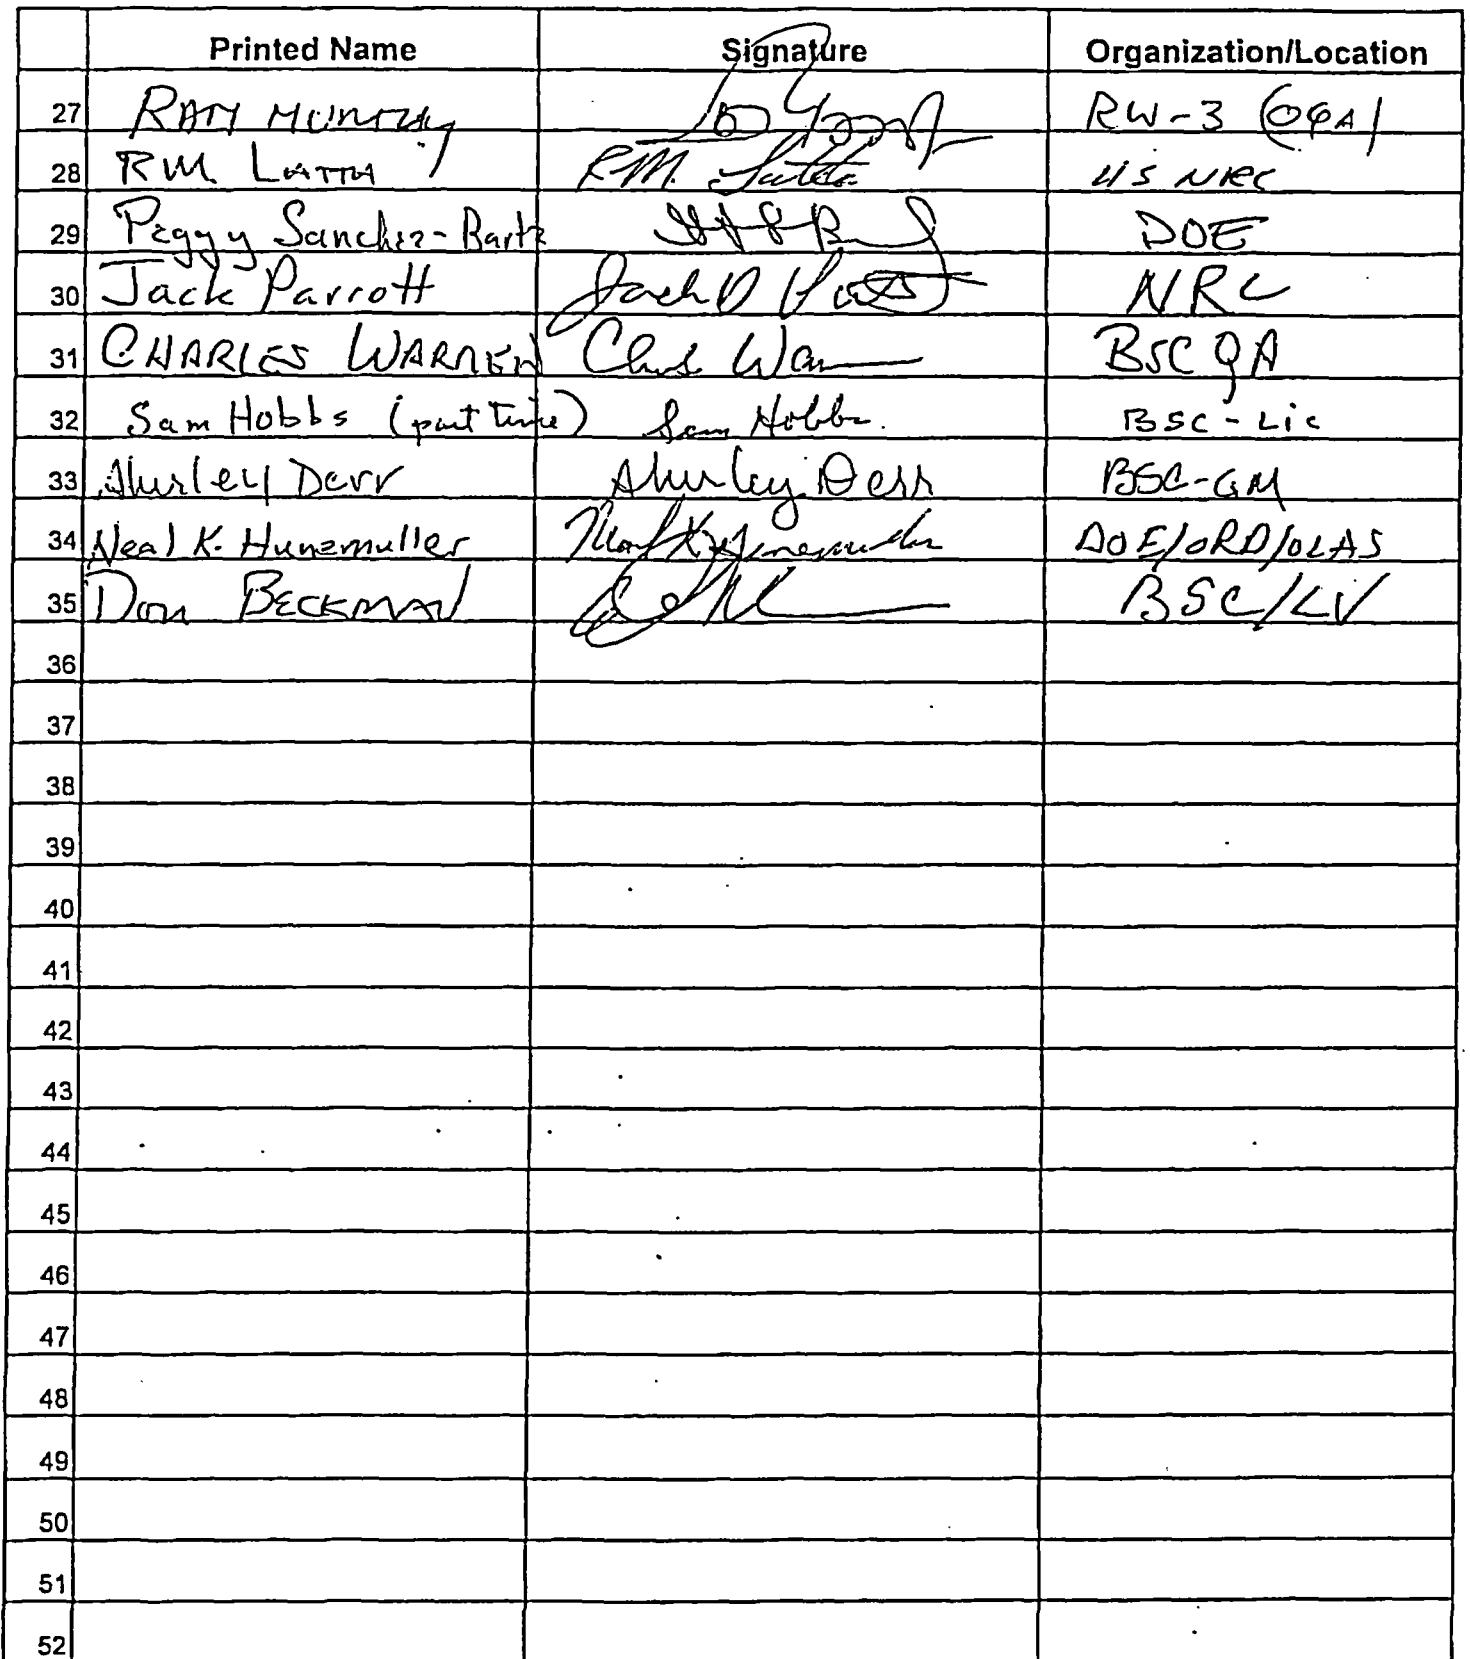 Printed Name Signature Organization/Location
27 RAM MURTHY RW-3 (OQA)
28 RM LATTA R.M. Latta US NRC
29 Peggy Sanchez-Bartz DOE
30 Jack Parrott Jack D Parrott NRC
31 CHARLES WARREN BSC QA
32 Sam Hobbs (part time) Sam Hobbs. BSC-Lic
33 Shurley Derr Shurley Derr BSC-GM
34 Neal K. Hunemuller DOE/ORD/OLAS
35 Don BECKMAN BSC/LV
36
37
38
39
40
41
42
43
44
45
46
47
48
49
50
51
52